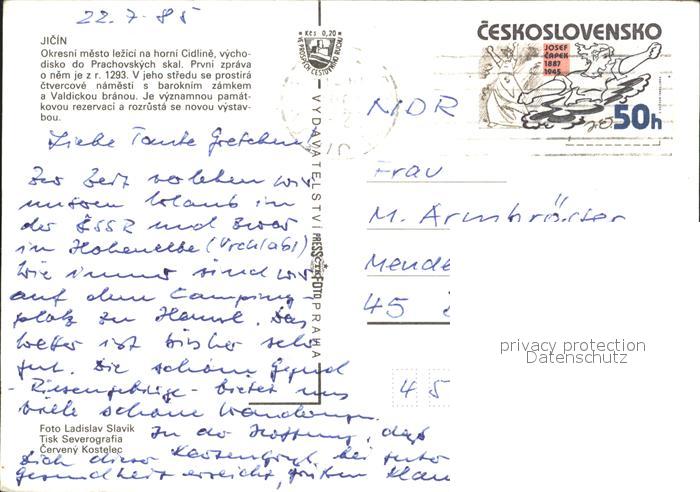 22.7.85
JIČÍN
Okresní město ležící na horní Cidlině, výcho-
disko do Prachovských skal. První zpráva
o něm je z r. 1293. V jeho středu se prostírá
čtvercové náměstí s barokním zámkem
a Valdickou bránou. Je významnou památ-
kovou rezervací a rozrůstá se novou výstav-
bou.
Liebe Tante Gretchen,
Zur Zeit verleben wir
unseren Urlaub in
der ČSSR und zwar
in Hohenelbe (Vrchlabí)
Wie immer sind wir
auf dem Camping-
platz zu Hause. Das
Wetter ist bisher sehr
gut. Die schöne Gegend
- Riesengebirge - bietet uns
viele schöne Wanderungen.
In der Hoffnung, daß
Dich dieser Kartengruß bei guter
Gesundheit erreicht, grüßen Klau
Foto Ladislav Slavík
Tisk Severografia
Červený Kostelec
Kčs 0,20
VE PROSPĚCH CESTOVNÍHO RUCHU
VYDAVATELSTVÍ PRESSFOTO PRAHA
ČTK
ČESKOSLOVENSKO
JOSEF
ČAPEK
1887
1945
50h
NDR
Frau
M. Armbröster
Mende
45
45
privacy protection
Datenschutz